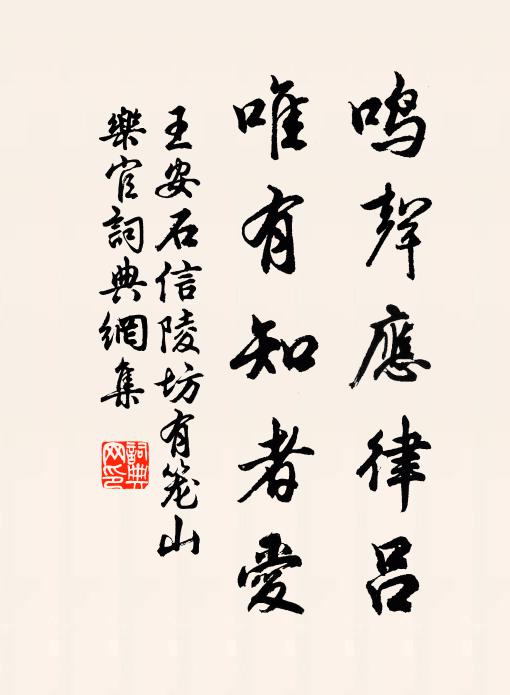 鳴聲應律呂
唯有知者愛
王安石信陵坊有笼山
樂官詞典網集
詞典
网印